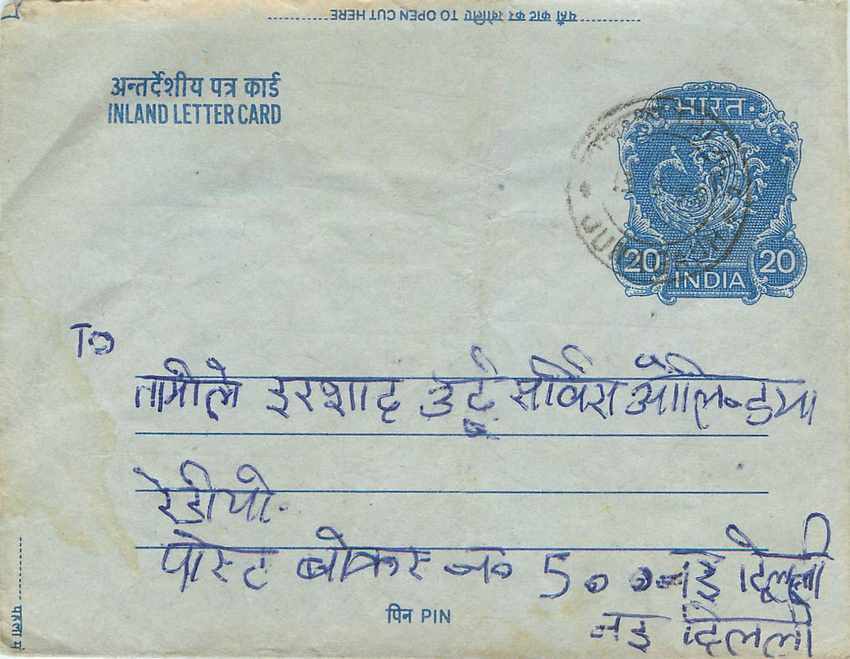 यहाँ काट कर खोलिए TO OPEN CUT HERE
अन्तर्देशीय पत्र कार्ड
INLAND LETTER CARD
भारत
20 INDIA 20
To
तामीले इरशाद उर्दू सर्विस ऑलिन्डया
रेडीयो.
पोस्ट बोकस न० 500 नई दिल्ली
नई दिलली
पिन PIN